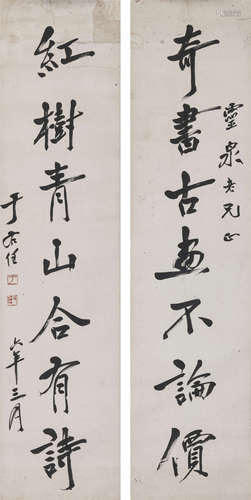 奇書古畫不論價
靈泉老兄正
紅樹青山合有詩
于右任
六年三月